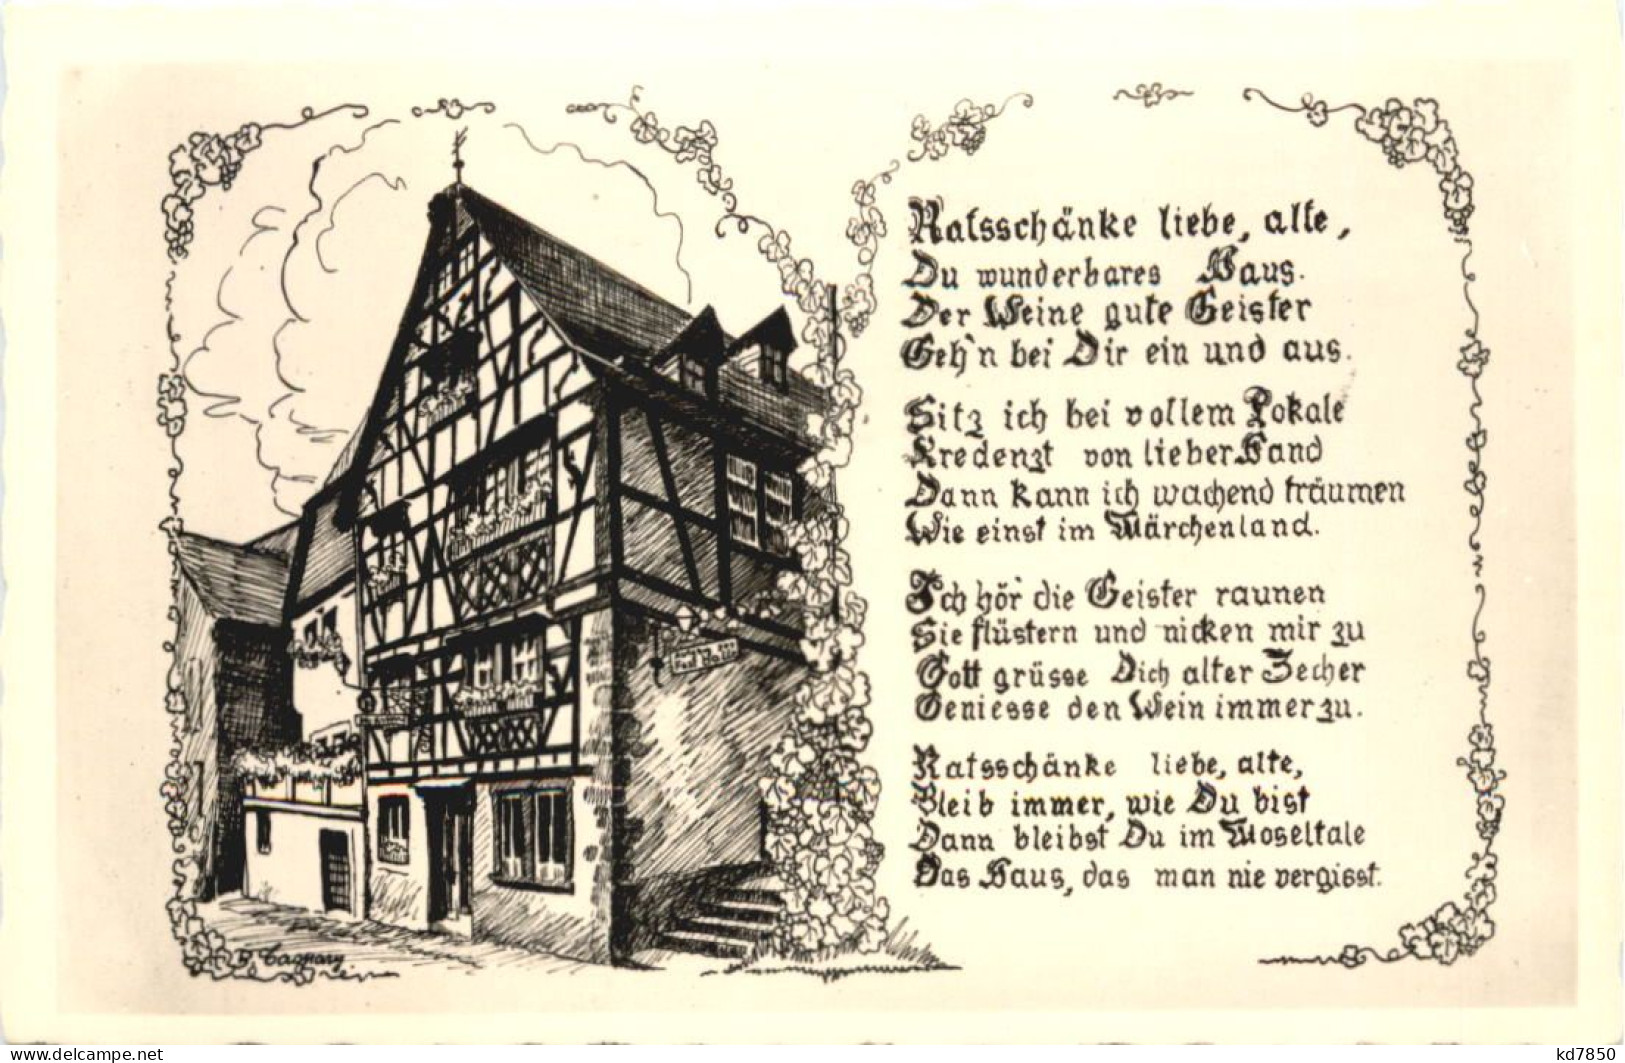 Ratsschänke liebe, alte,
Du wunderbares Haus.
Der Weine gute Geister
Geh'n bei Dir ein und aus.
Sitz ich bei vollem Pokale
Kredenzt von lieber Hand
Dann kann ich wachend träumen
Wie einst im Märchenland.
Ich hör' die Geister raunen
Sie flüstern und nicken mir zu
Gott grüsse Dich alter Zecher
Geniesse den Wein immer zu.
Ratsschänke liebe, alte,
Bleib immer, wie Du bist
Dann bleibst Du im Moseltale
Das Haus, das man nie vergisst.
www.delcampe.net
kd7850